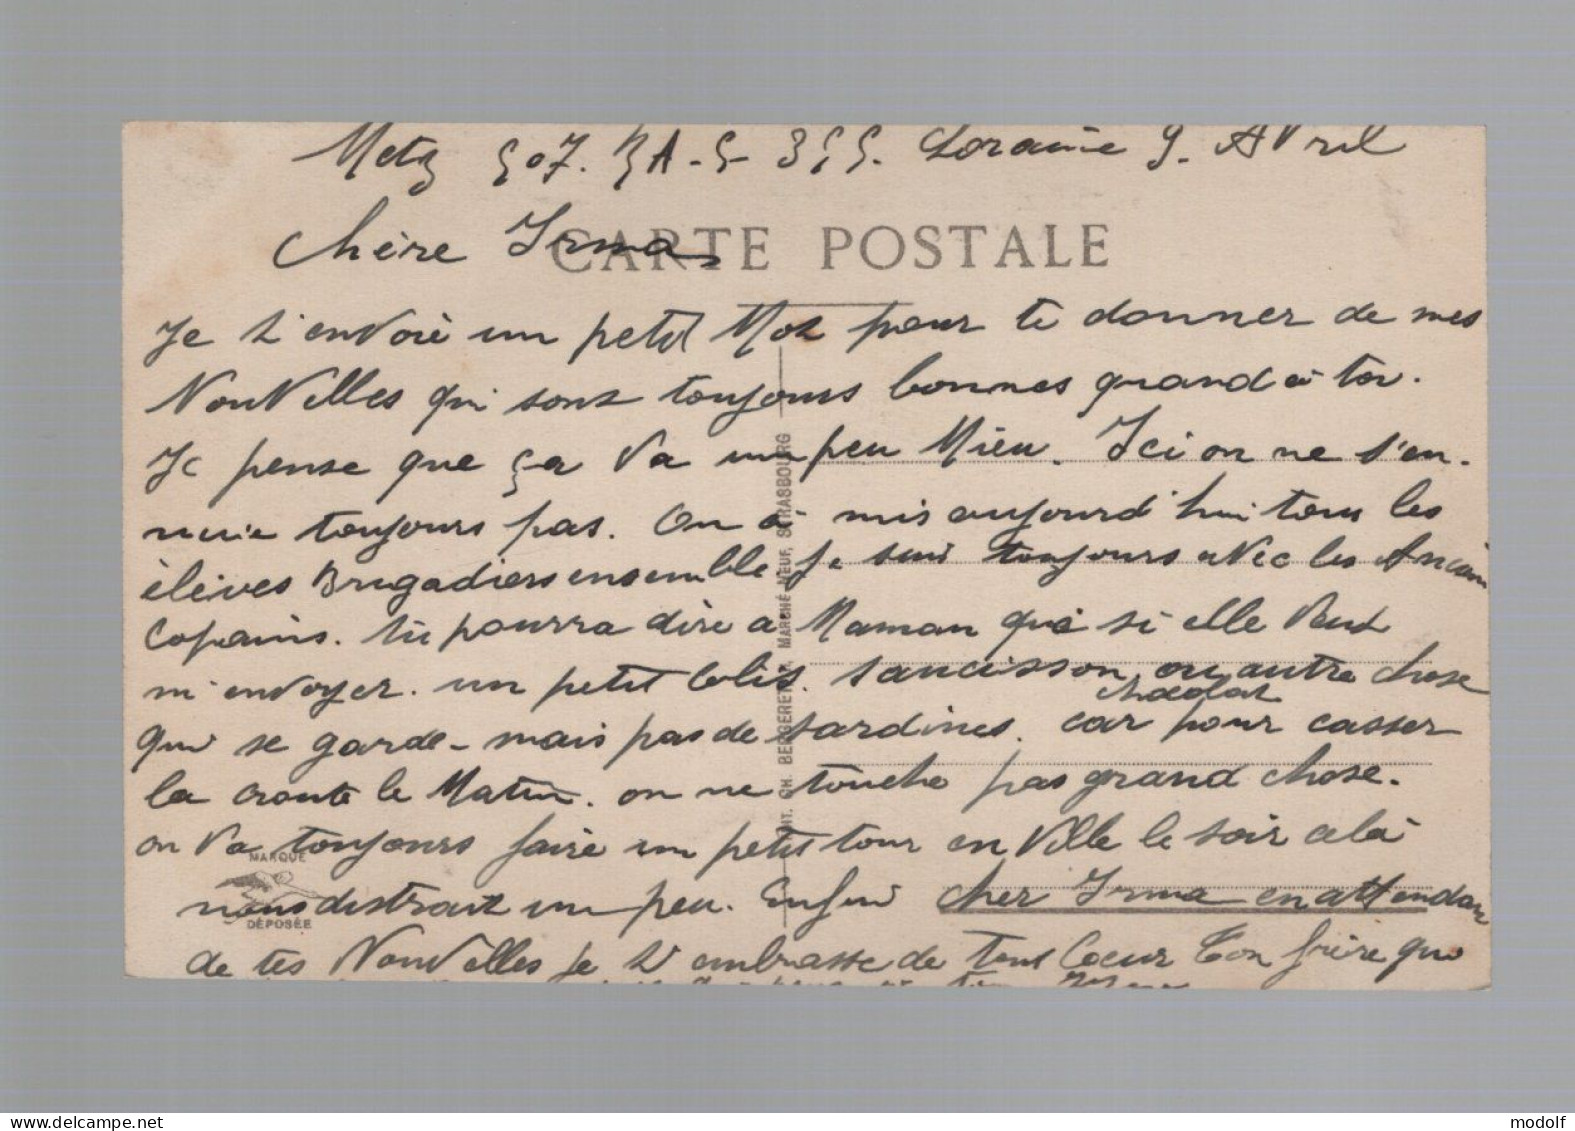 Metz 507. RA-5- 355. Loraine 9. Avril
CARTE POSTALE
Chère Irma
Je t'envoie un petit Mot pour te donner de mes
Nouvelles qui sont toujours bonnes quand à toi.
Je pense que ça Va un peu Mieu. Ici on ne s'en-
nuie toujours pas. On à mis aujourd'hui tous les
élèves Brigadiers ensemble Je suis toujours avec les Anciens
Copains. tu pourra dire a Maman que si elle Veut
m'envoyer. un petit Colis. saucisson ou autre chose
chocolat
qui se garde - mais pas de sardines. car pour casser
la croute le Matin. on ne touche pas grand chose.
on Va toujours faire un petit tour en Ville le soir cela
nous distrait un peu. Enfin cher Irma en attendant
de tes Nouvelles je t'embrasse de tout Coeur Ton frère qui
MARQUE
DÉPOSÉE
CH. BERGERET, MARCHÉ-NEUF, STRASBOURG
modolf